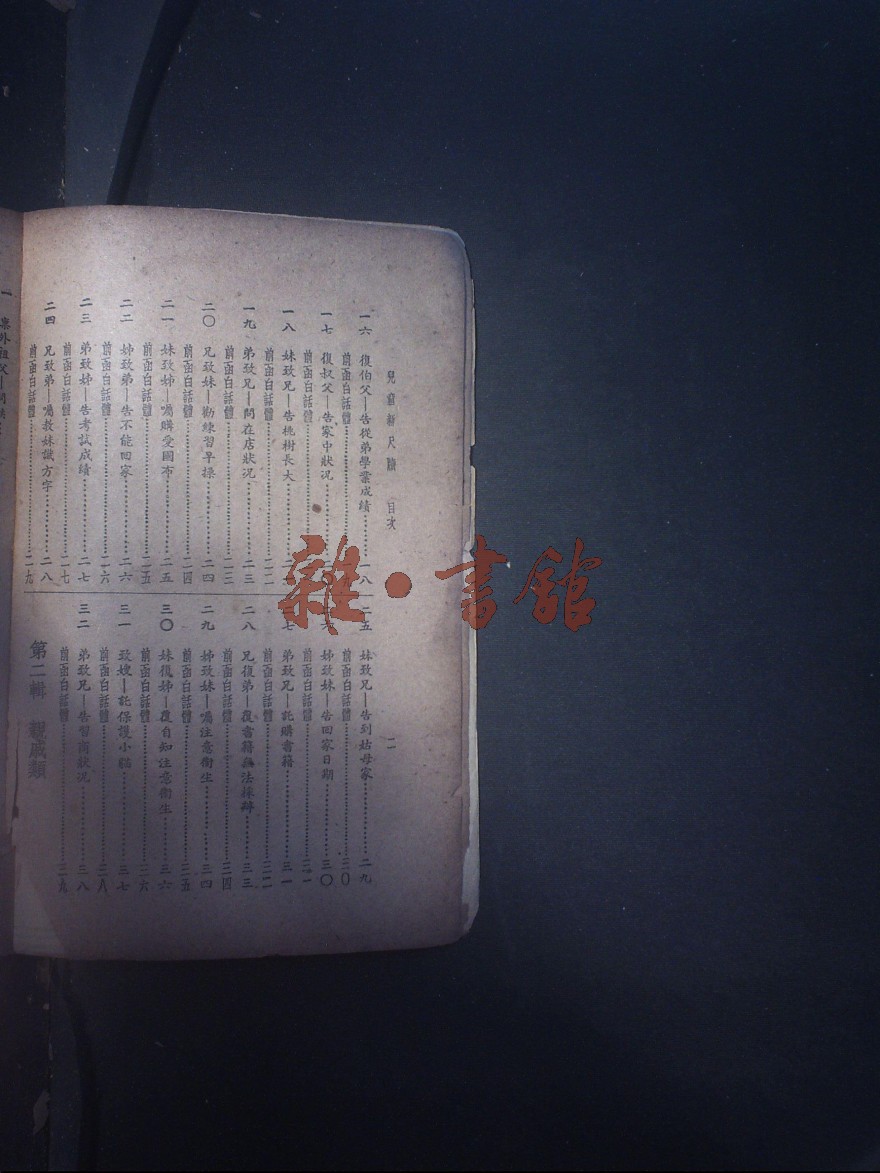 兒童新尺牘 目次
二
一六 復伯父—告從弟學業成績………一八
前函白話體
一七 復叔父—告家中狀況
前函白話體
一八 妹致兄—告桃樹長大
前函白話體………二二
一九 弟致兄—問在店狀況………二三
前函白話體………二三
二〇 兄致妹—勸練習早操………二四
前函白話體………二四
二一 妹致姊—囑購愛國布………二五
前函白話體………二五
二二 姊致弟—告不能回家………二六
前函白話體………二六
二三 弟致姊—告考試成績………二七
前函白話體………二七
二四 兄致弟—囑教妹識方字………二八
前函白話體………二九
二五 妹致兄—告到姑母家………二九
前函白話體………三〇
姊致妹—告回家日期………三〇
前函白話體………三一
弟致兄—託購書籍………三一
前函白話體………三二
二八 兄復弟—復書籍無法採辦………三三
前函白話體………三四
二九 姊致妹—囑注意衛生………三四
前函白話體………三五
三〇 妹復姊—復自知注意衛生………三六
前函白話體………三六
三一 致嫂—託保護小貓………三七
前函白話體………三八
三二 弟致兄—告習商狀況………三八
前函白話體………三九
第二輯 親戚類
一 稟外祖父—問
雜·書館